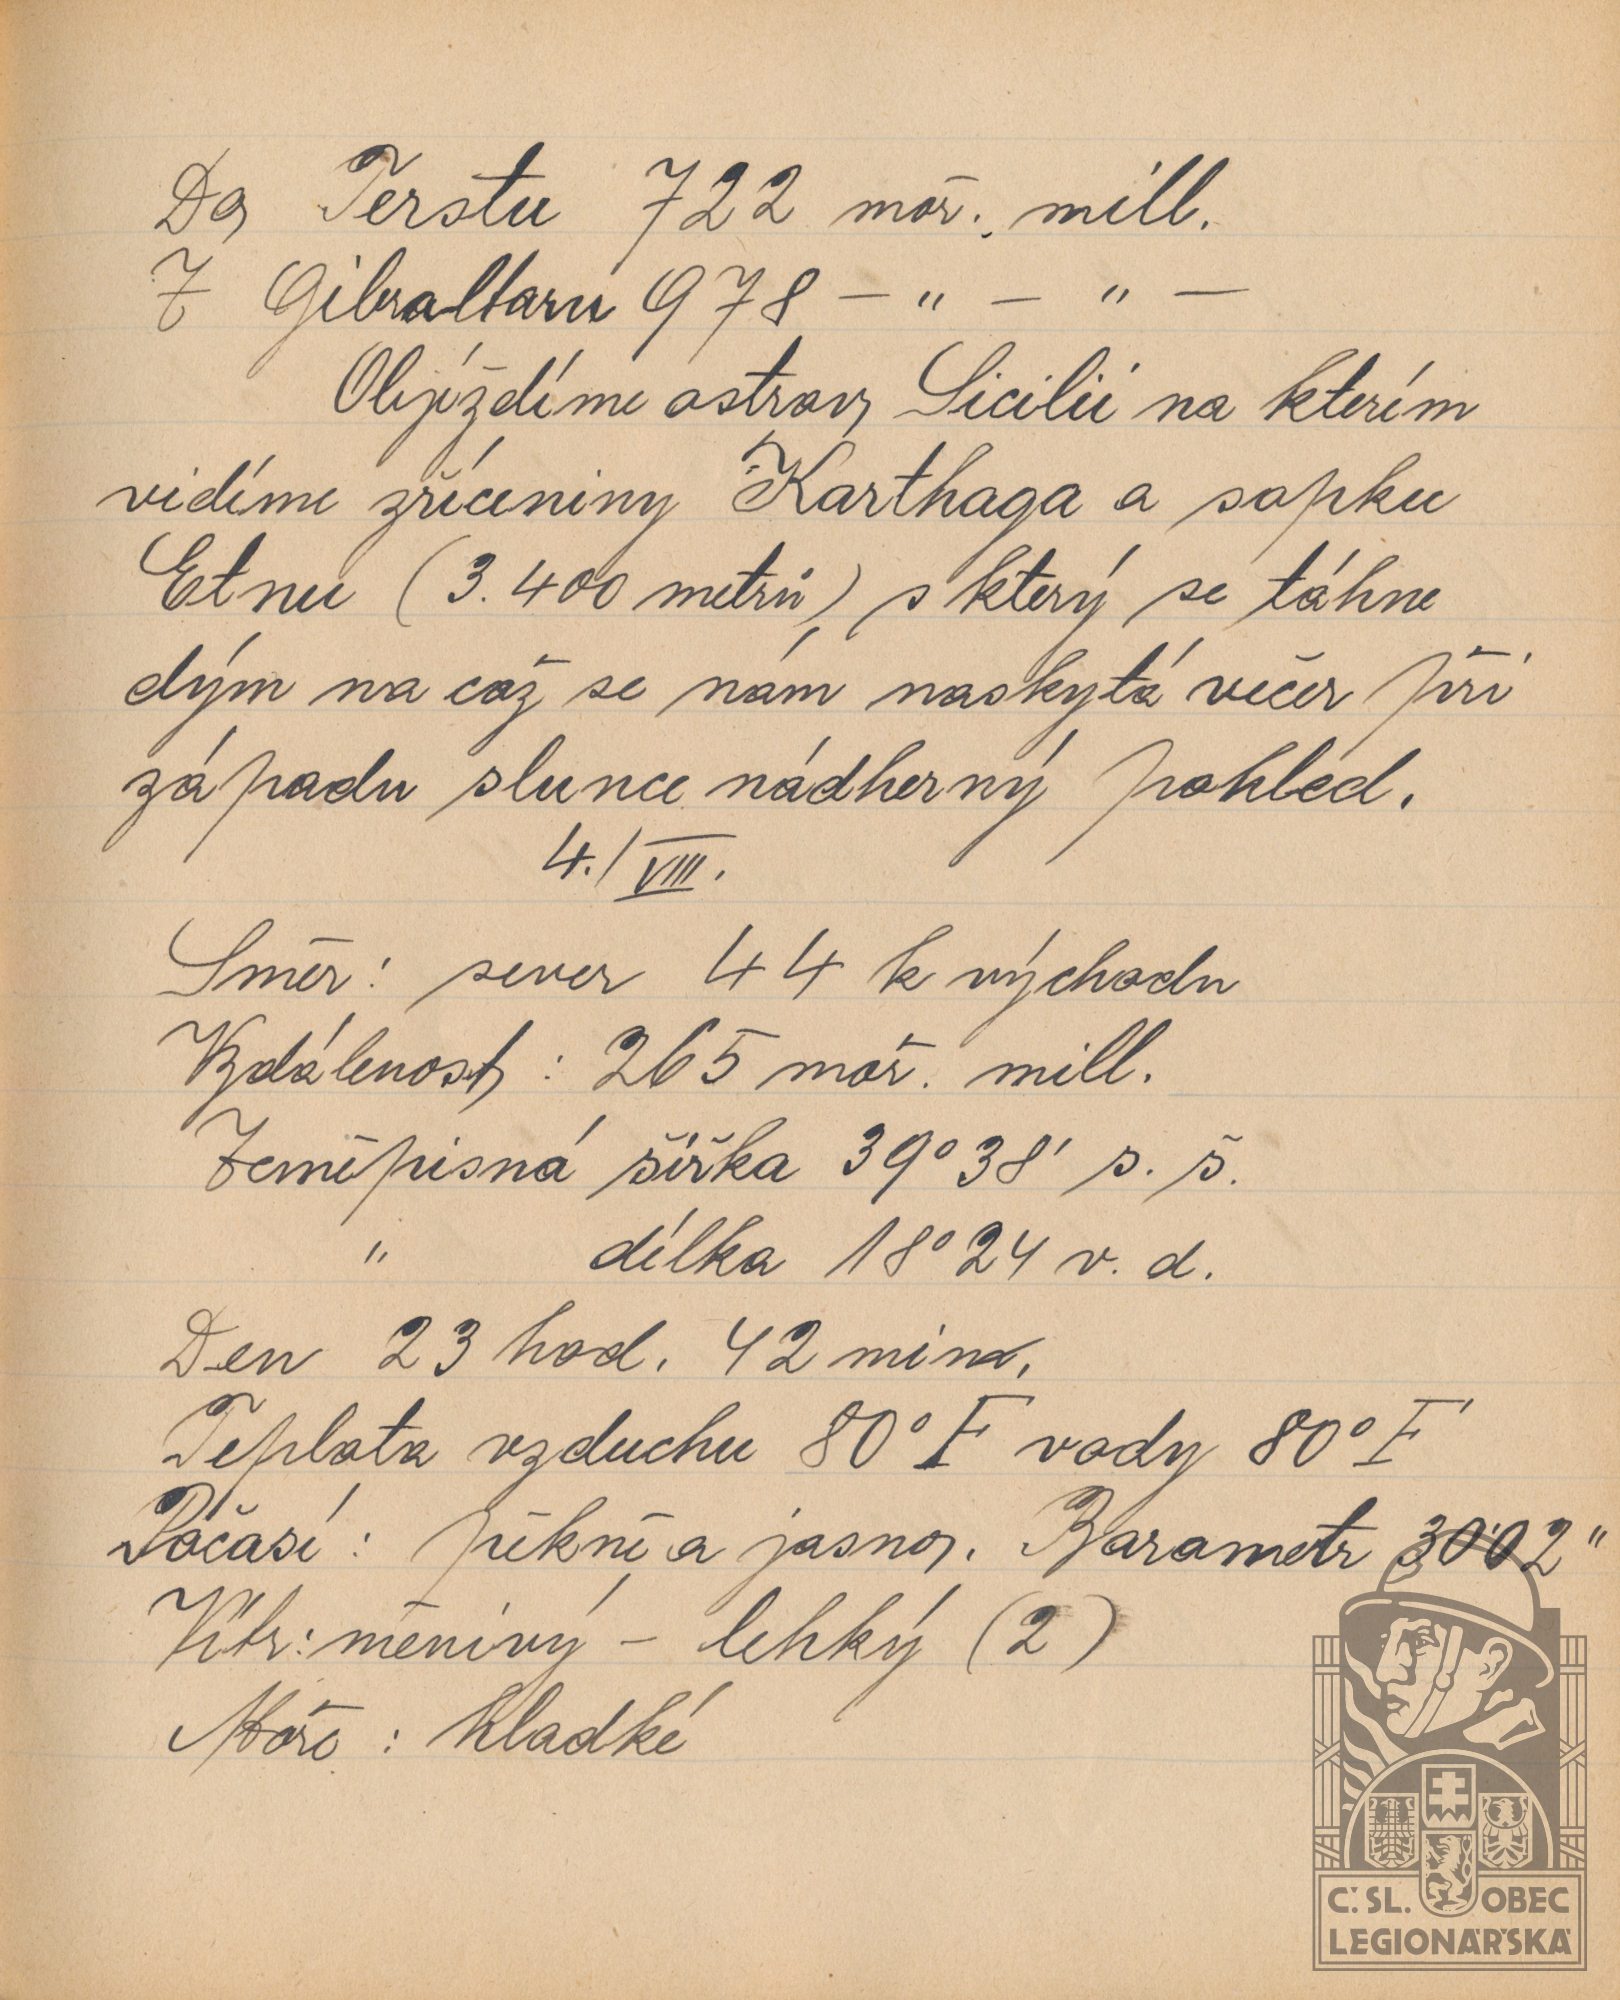 Do Terstu 722 moř. mill.
Z Gibraltaru 978 — " — " —
Objíždíme ostrov Sicilii na kterím
vidíme zříceniny Karthaga a sopku
Etnu (3.400 metrů) s který se táhne
dým na což se nám naskytá večer při
západu slunce nádherný pohled.
4./VIII.
Směr: sever 44 k východu
Vzdálenost: 265 moř. mill.
Zeměpisná šířka 39° 38' s. š.
" délka 18° 24 v. d.
Den 23 hod. 42 min.
Teplota vzduchu 80° F vody 80° F
Počasí: pěkně a jasno. Barometr 30'02"
Vítr: měnivý – lehký (2)
Moře: hladké
Č. SL. OBEC
LEGIONÁŘSKÁ